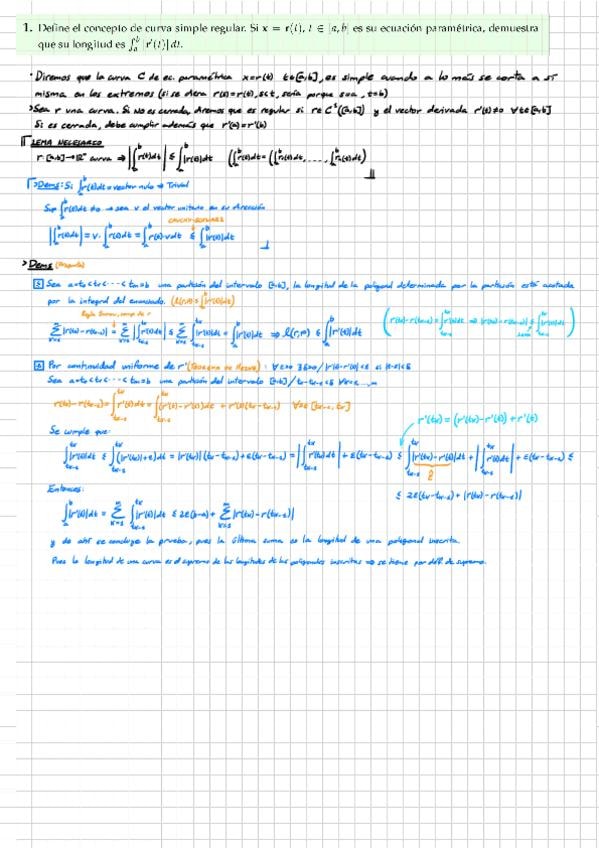 1. Define el concepto de curva simple regular. Si x = r(t), t ∈ [a, b] es su ecuación paramétrica, demuestra
que su longitud es ∫ₐᵇ |r'(t)| dt.
· Diremos que la curva C de ec. paramétrica x=r(t) t∈[a,b], es simple cuando a lo más se corta a sí
misma en los extremos (si se diera r(s)=r(t), s<t, sería porque s=a, t=b)
> Sea r una curva. Si NO es cerrada, diremos que es regular si r∈C¹([a,b]) y el vector derivada r'(t)≠0 ∀t∈[a,b]
Si es cerrada, debe cumplir además que r'(a)=r'(b)
LEMA NECESARIO
r: [a,b]→ℝⁿ curva ⇒ |∫ₐᵇ r(t)dt| ≤ ∫ₐᵇ |r(t)|dt (∫ₐᵇ r(t)dt = (∫ₐᵇ r₁(t)dt, ..., ∫ₐᵇ rₙ(t)dt)
> Dem: Si ∫ₐᵇ r(t)dt = vector nulo ⇒ Trivial
Sup ∫ₐᵇ r(t)dt ≠0 → sea v el vector unitario en su dirección
CAUCHY-SCHWARZ
|∫ₐᵇ r(t)dt| = v· ∫ₐᵇ r(t)dt = ∫ₐᵇ r(t)·v dt ≤ ∫ₐᵇ |r(t)|dt
> Dem
≤ Sea a=t₀<t₁<···<tₘ=b una partición del intervalo [a,b], la longitud de la poligonal determinada por la partición está acotada
por la integral del enunciado.
Regla Barrow
Σ |r(tₖ)-r(tₖ₋₁)| = Σ |∫ r'(t)dt| ≤ Σ ∫ |r'(t)|dt = ∫ₐᵇ |r'(t)|dt ⇒ ℓ(r,P) ≤ ∫ₐᵇ |r'(t)|dt
(r(tₖ)-r(tₖ₋₁) = ∫ r'(t)dt ⇒ |r(tₖ)-r(tₖ₋₁)| ≤ ∫ |r'(t)|dt)
Por continuidad uniforme de r' (TEOREMA DE HEINE): ∀ε>0 ∃δ>0/ |r'(s)-r'(t)|<ε si |s-t|<δ
Sea a=t₀<t₁<···<tₘ=b una partición del intervalo [a,b]/ tₖ-tₖ₋₁<δ ∀k=1,...,m
r(tₖ)-r(tₖ₋₁) = ∫ r'(t)dt = ∫ (r'(t)-r'(tₖ))dt + r'(tₖ)(tₖ-tₖ₋₁) ∀t∈[tₖ₋₁,tₖ]
r'(tₖ) = (r'(tₖ)-r'(t)) + r'(t)
Se cumple que:
∫ |r'(t)|dt ≤ ∫ (|r'(tₖ)|+ε)dt = |r'(tₖ)|(tₖ-tₖ₋₁)+ε(tₖ-tₖ₋₁) = |∫ r'(tₖ)dt| + ε(tₖ-tₖ₋₁) ≤ ∫ |r'(tₖ)-r'(t)|dt + |∫ r'(t)dt| + ε(tₖ-tₖ₋₁) ≤
≤ 2ε(tₖ-tₖ₋₁) + |r(tₖ)-r(tₖ₋₁)|
Entonces:
∫ₐᵇ |r'(t)|dt = Σ ∫ |r'(t)|dt ≤ 2ε(b-a) + Σ |r(tₖ)-r(tₖ₋₁)|
y de ahí se concluye la prueba, pues la última suma es la longitud de una poligonal inscrita.
Pues la longitud de una curva es el supremo de las longitudes de las poligonales inscritas ⇒ se tiene por def. de supremo.